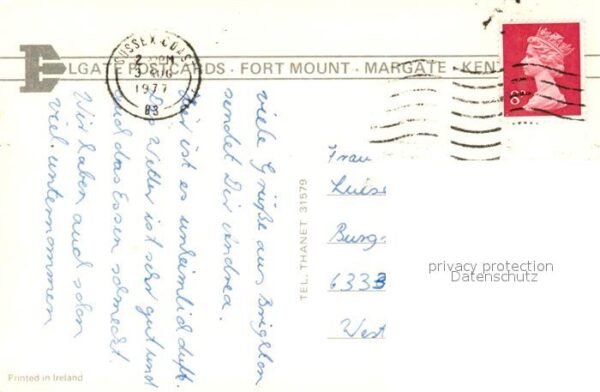 ELGATE POSTCARDS · FORT MOUNT · MARGATE · KENT
SUSSEX COAST
2 PM
3 AUG
1977
83
viele Grüße aus Brighton
sendet Dir Andrea.
Hier ist es unheimlich dufte.
Das Wetter ist sehr gut und
und das Essen schmeckt.
Wir haben auch schon
viel unternommen
TEL. THANET 31579
Frau
Luise
Burg-
6333
West
privacy protection
Datenschutz
Printed in Ireland